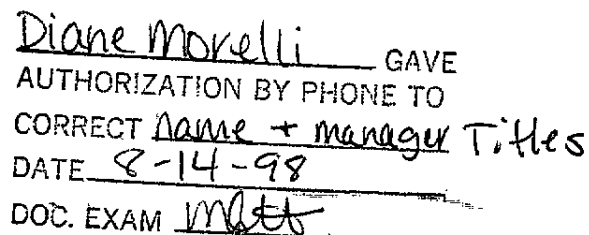 Diane Morelli GAVE
AUTHORIZATION BY PHONE TO
CORRECT name + manager Titles
DATE 8-14-98
DOC. EXAM